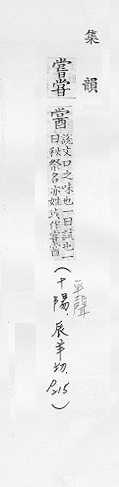 集韻
嘗甞
說文口之味也一曰試也一
曰秋祭名亦姓或作甞
平聲
(十陽.辰羊切.P215)